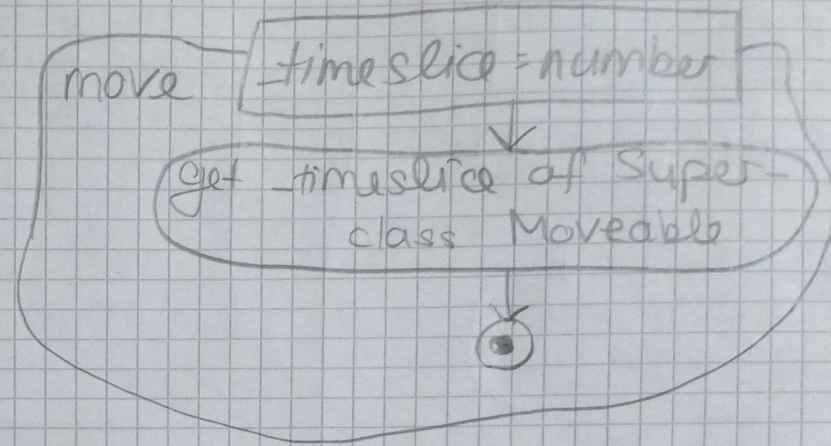 move
timeslice = number
get timeslice of Super-
class Moveable